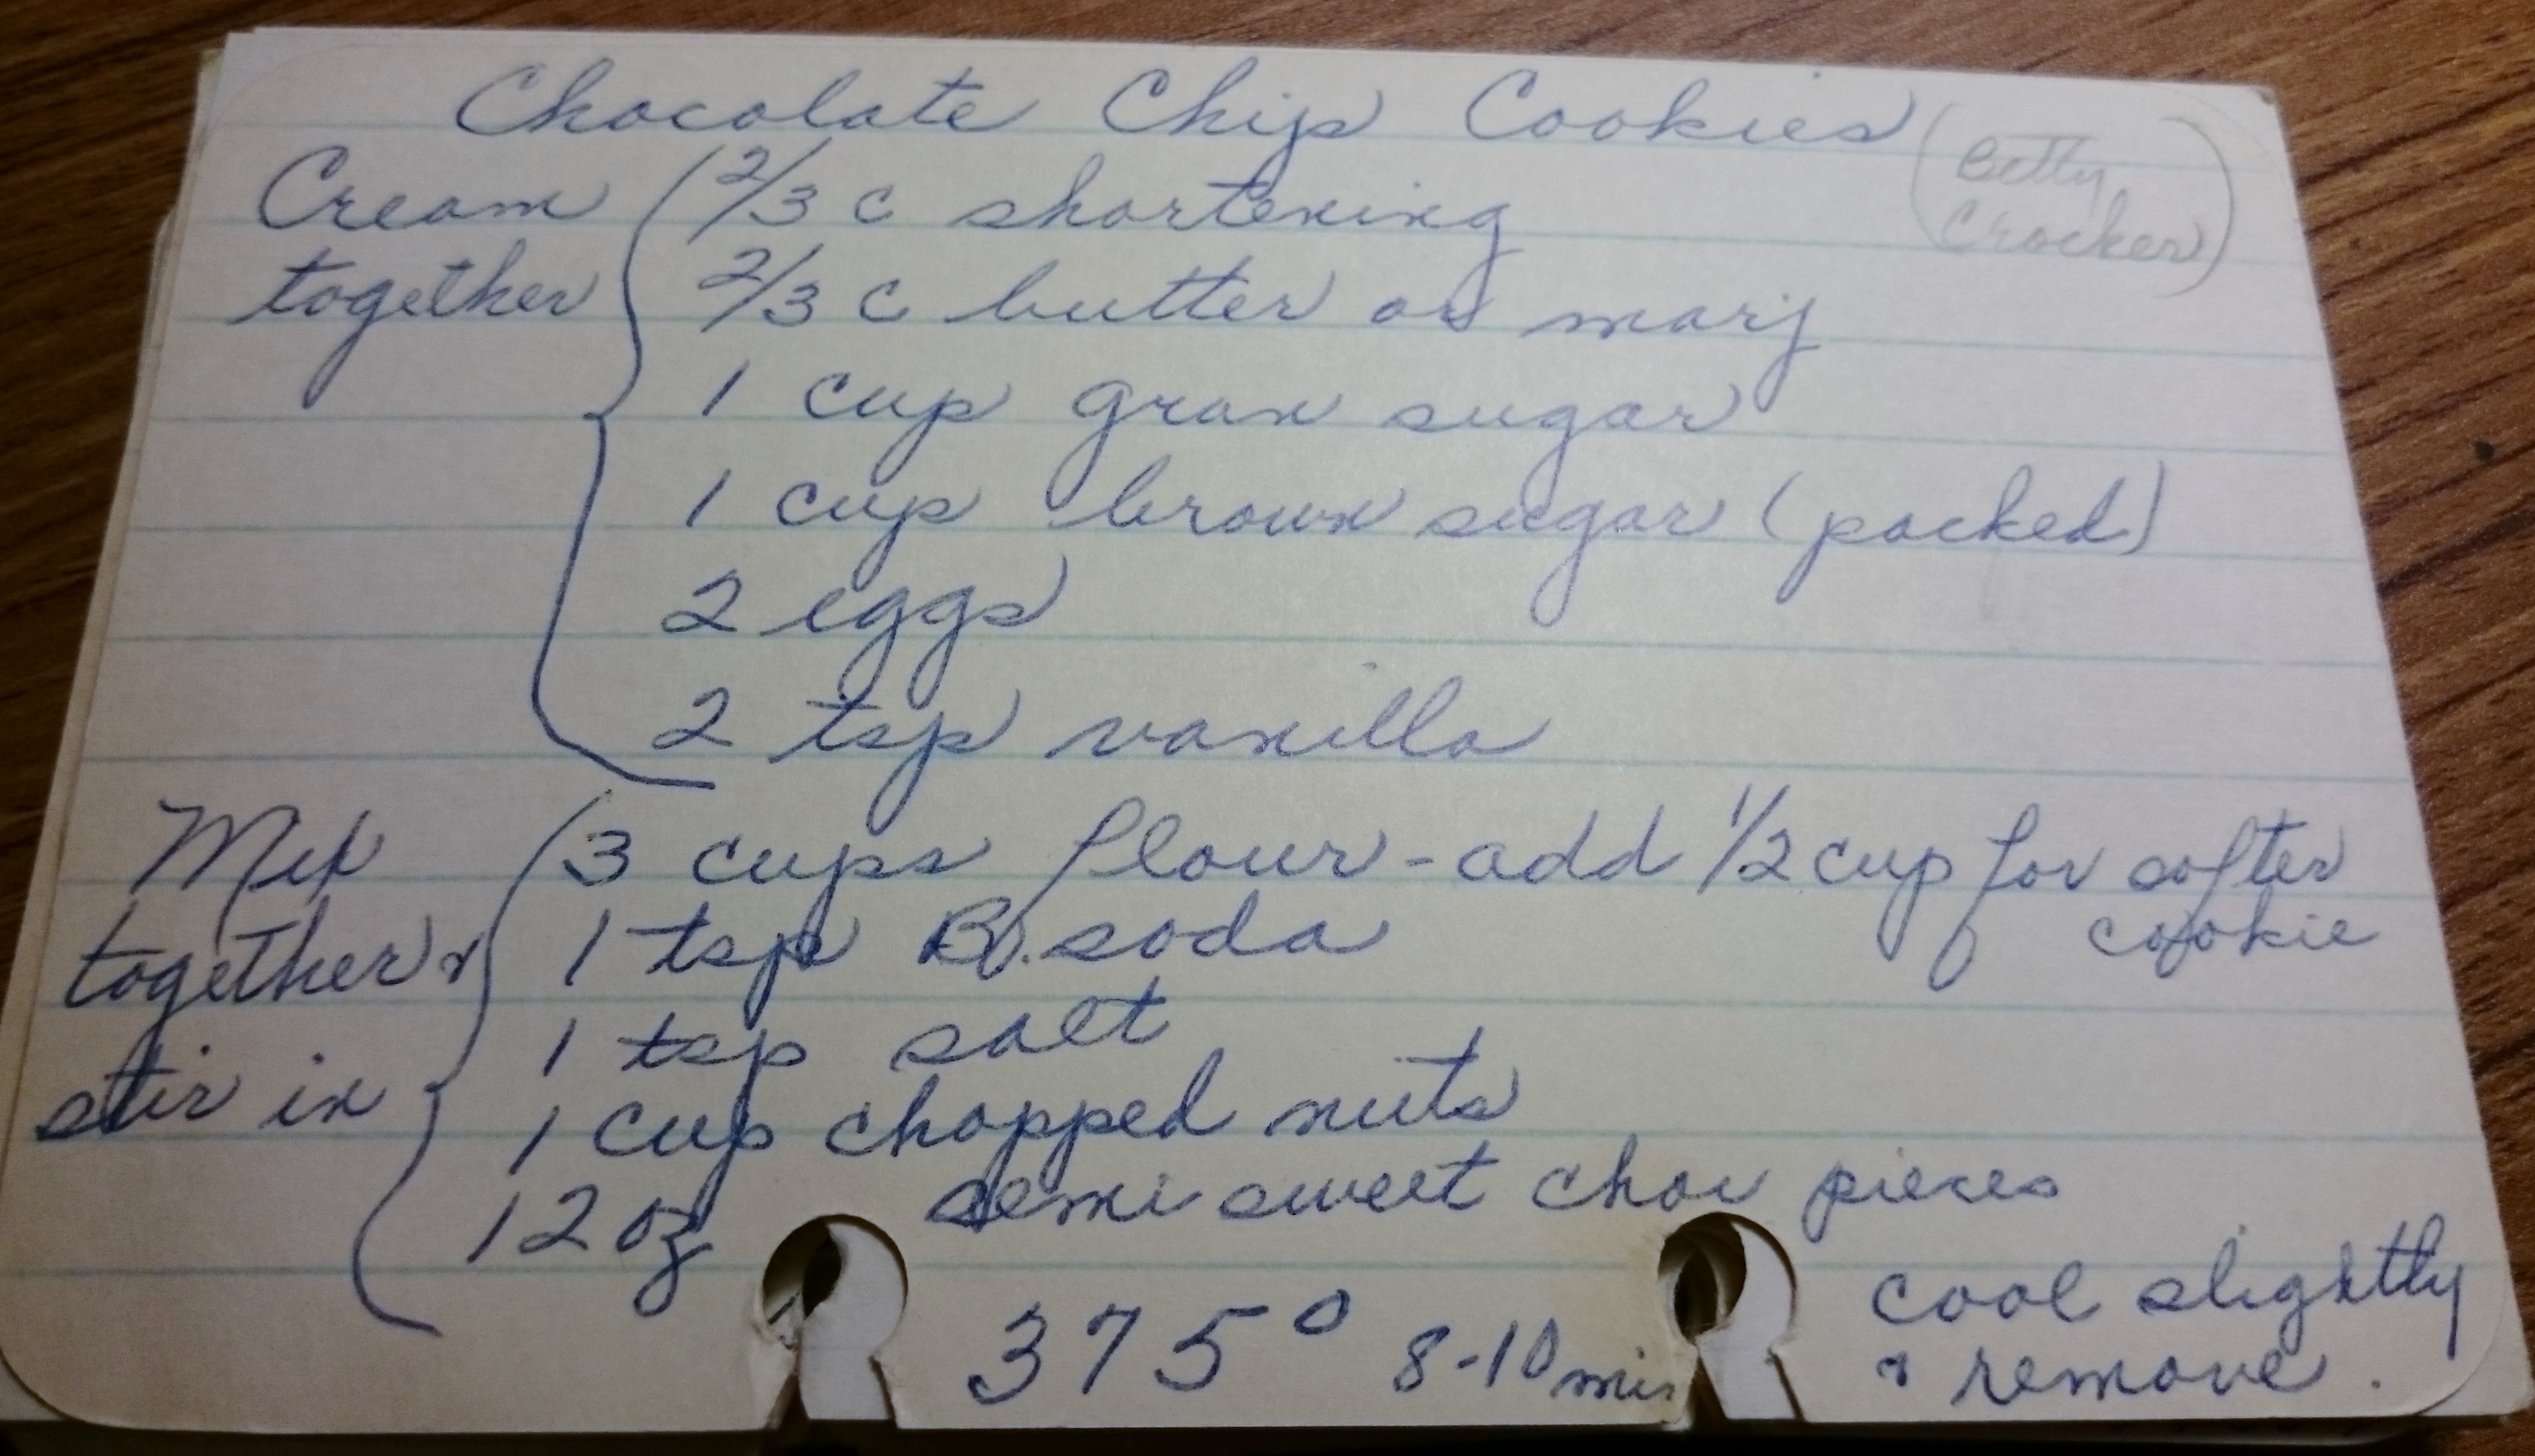 Chocolate Chip Cookies (Betty Crocker)
Cream together { 2/3 c shortening
2/3 c butter or marj
1 cup gran sugar
1 cup brown sugar (packed)
2 eggs
2 tsp vanilla
Mix together & stir in { 3 cups flour - add 1/2 cup for softer cookie
1 tsp B. soda
1 tsp salt
1 cup chopped nuts
12 oz semi sweet choc pieces
375° 8-10 min
cool slightly
& remove.